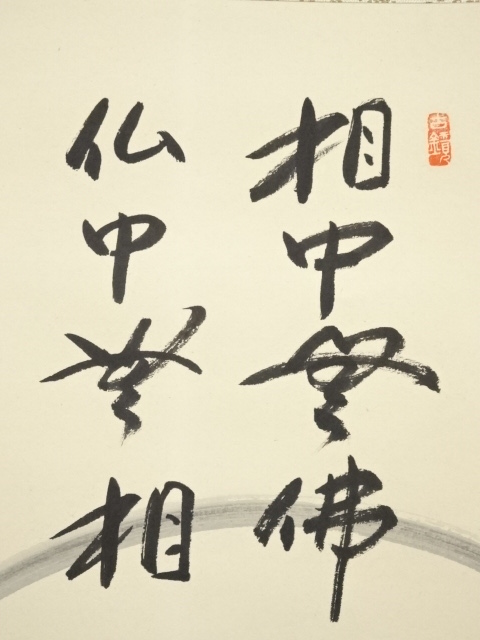 相中無佛
仏中無相